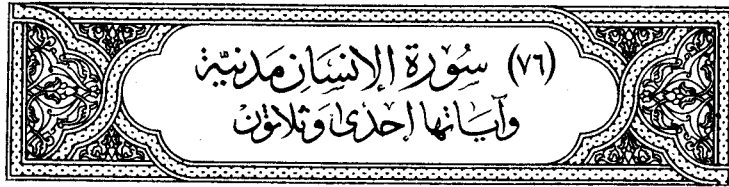 (٧٦) سُورَة الإنسَان مَدنيَّة
وَآيَاتها إحدى وَثلاثون